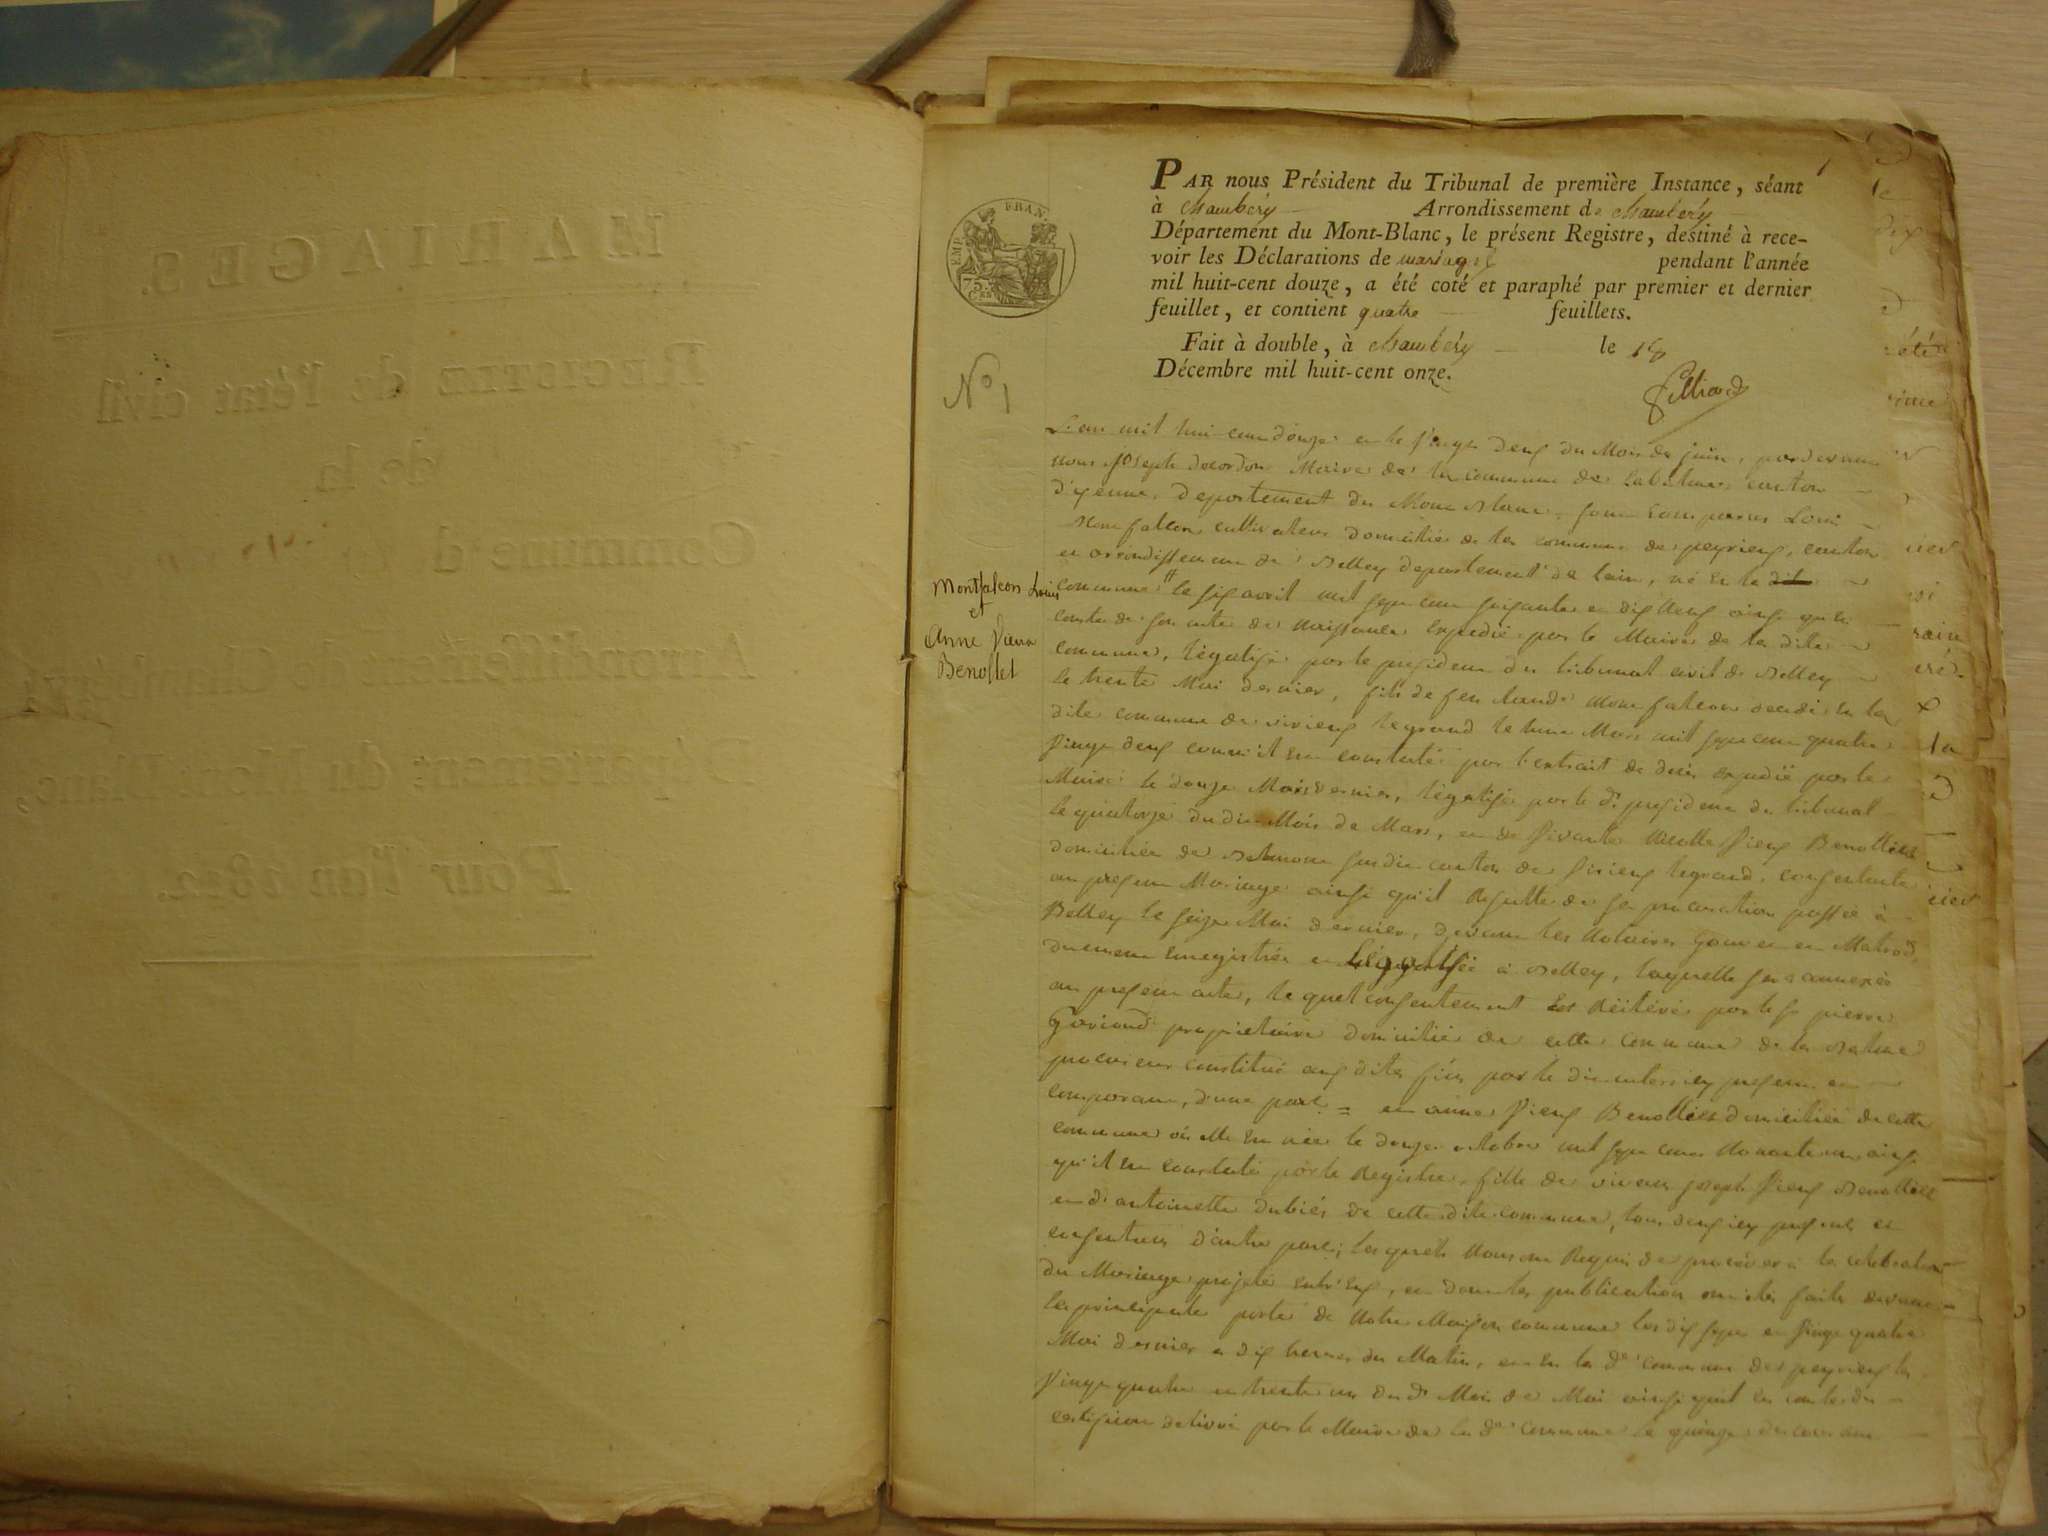 MARIAGES.
REGISTRE de l'état civil
de la
Commune d
Arrondissement de Chambéry,
Département du Mont-Blanc,
Pour l'an 1812.
EMP. FRAN.
75.
CES
PAR nous Président du Tribunal de première Instance, séant
à Chambéry Arrondissement de Chambéry
Département du Mont-Blanc, le présent Registre, destiné à rece-
voir les Déclarations de mariages pendant l'année
mil huit-cent douze, a été coté et paraphé par premier et dernier
feuillet, et contient quatre feuillets.
Fait à double, à Chambéry le 18
Décembre mil huit-cent onze.
N° 1
Montfalcon Louis
et
Anne
Benollet
L'an mil huit cent douze et le vingt deux du Mois de juin, pardevant
nous joseph Maire de la commune de Labalme canton
d'yenne, Departement du Mont Blanc, sont comparus Louis
Montfalcon cultivateur domicilié de la commune de peyrieux, canton
et arrondissement de Belley departement de Lain, né en la dite
commune le six avril mil sept cent soixante et dix neuf ainsi qu'il
conste de son acte de Naissance Expedié par le Maire de la dite
commune, légalisé par le president du tribunal civil de Belley
le trente Mai dernier, fils de feu Claude Montfalcon decedé en la
dite commune de virieux legrand le Mars mil sept cent quatre
vingt deux comme il est constaté par l'extrait de décès expedié par le
Maire le douze Mars dernier, légalisé par le dt president du tribunal
le quatorze dudit Mois de Mars, et de vivante Benollet
domiciliée de canton de virieux legrand, consentante
au present Mariage ainsi qu'il Resulte de sa procuration passée à
Belley le seize Mai dernier, devant les Notaires et
duement Enregistrée et Légalisée à Belley, laquelle sera annexée
au present acte, le quel consentement Est Réitéré par le sr pierre
proprietaire domicilié de cette commune de la Balme
procureur constitué aux dites fins par le dit acte icy present et
comparant, d'une part = et anne Benollet domiciliée de cette
commune où elle Est née le douze octobre mil sept cent Nonante un, ainsi
qu'il Est constaté par le Registre, fille de vivans joseph Benollet
et d'antoinette de cette dite commune, tous deux icy presents et
consentans d'autre part; lesquels Nous ont Requis de proceder à la celebration
du Mariage projeté Entr'Eux, et dont les publications ont été faites devant
la principale porte de Notre Maison commune les dix sept et vingt quatre
Mai dernier à dix heures du Matin, et En la de commune de peyrieux les
vingt quatre et trente un du dt Mois de Mai ainsi qu'il en conste du
certificat delivré par le Maire de la de commune le quinze du courant